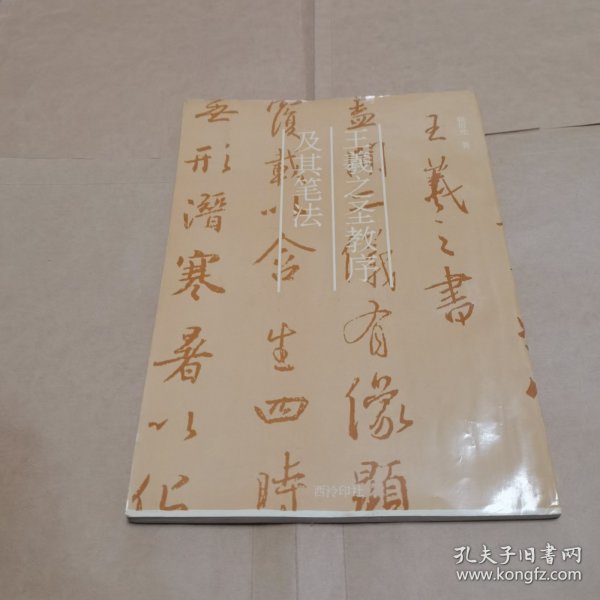 王羲之圣教序
及其笔法
著
王羲之書
蓋聞二儀有像顯
覆載以含生四時
無形潛寒暑以化
西泠印社
孔夫子旧书网
www.kongfz.com